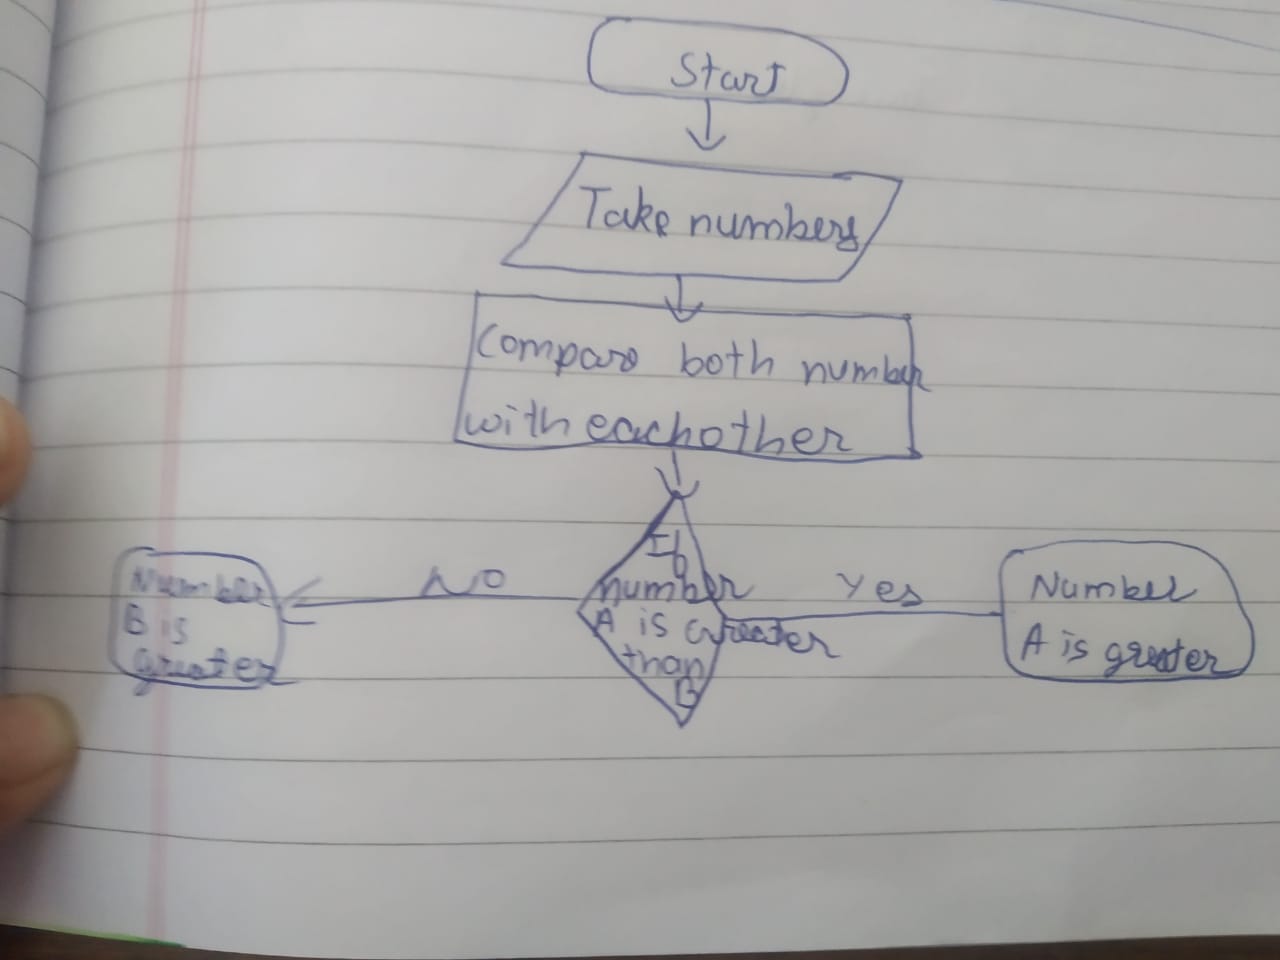 Start
Take numbers
Compare both number
with eachother
If
number
A is Greater
than
B
No
Yes
Number
B is
greater
Number
A is greater